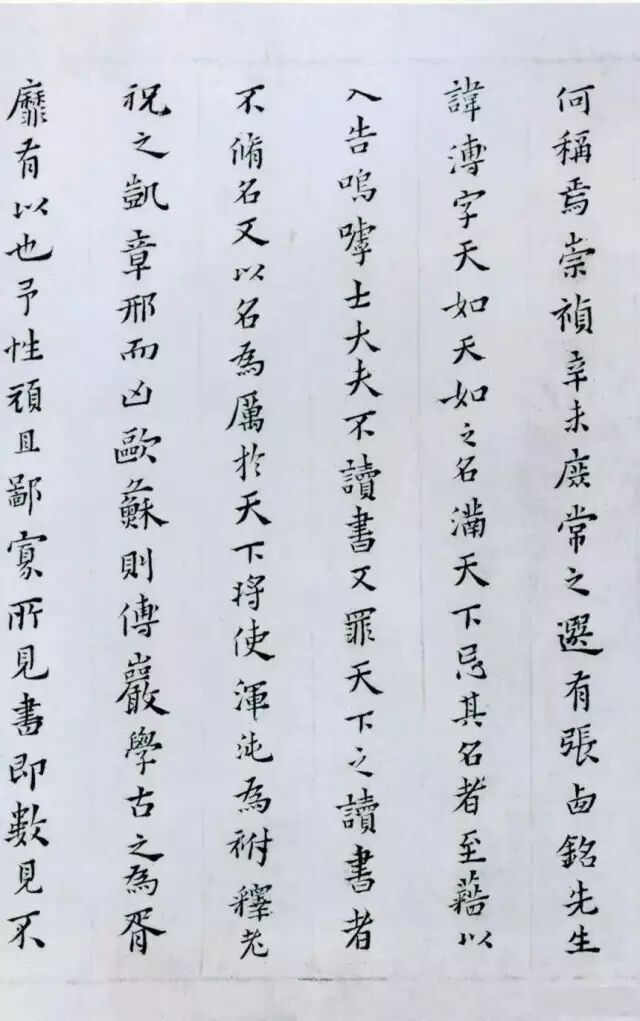 何稱焉崇禎辛未庶常之選有張西銘先生
諱溥字天如天如之名滿天下忌其名者至藉以
入告嗚嘑士大夫不讀書又罪天下之讀書者
不脩名又以名為厲於天下將使渾沌為祔釋老
祝之凱章邢而凶歐蘇則傅巖學古之為胥
靡有以也予性頑且鄙寡所見書即數見不